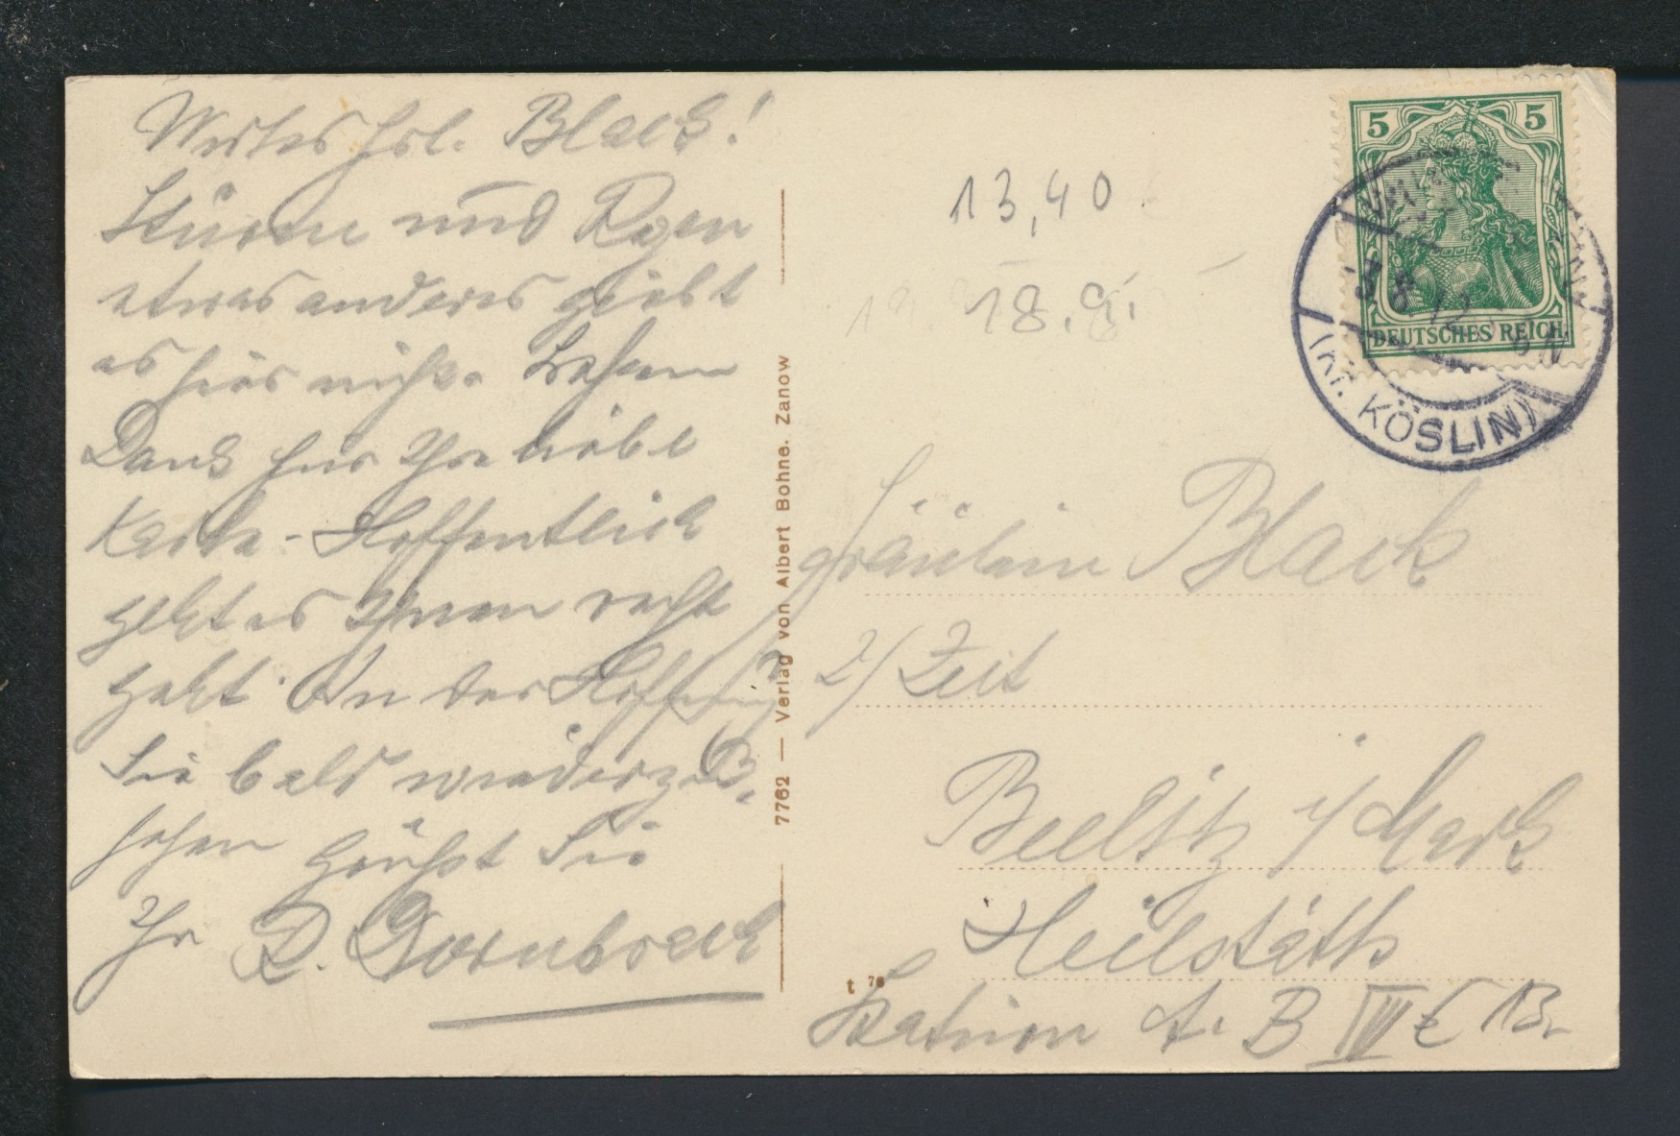 Wertes Frl. Black!
Stürme und Regen
etwas anderes giebt
es hier nicht. Besten
Dank für Ihre liebe
Karte - Hoffentlich
geht es Ihnen recht
gut. In der Hoffnung
Sie bald wiederzu
sehen grüßt Sie
Ihr D. Dornbrack
7762 — Verlag von Albert Bohne. Zanow
13,40
18.9.
5 5
DEUTSCHES REICH
3 8 12
(Kr. KÖSLIN)
Fräulein Black
z/ Zeit
Beelitz i/ Mark
Heilstätte
t 76
Station A. B IV E 13.